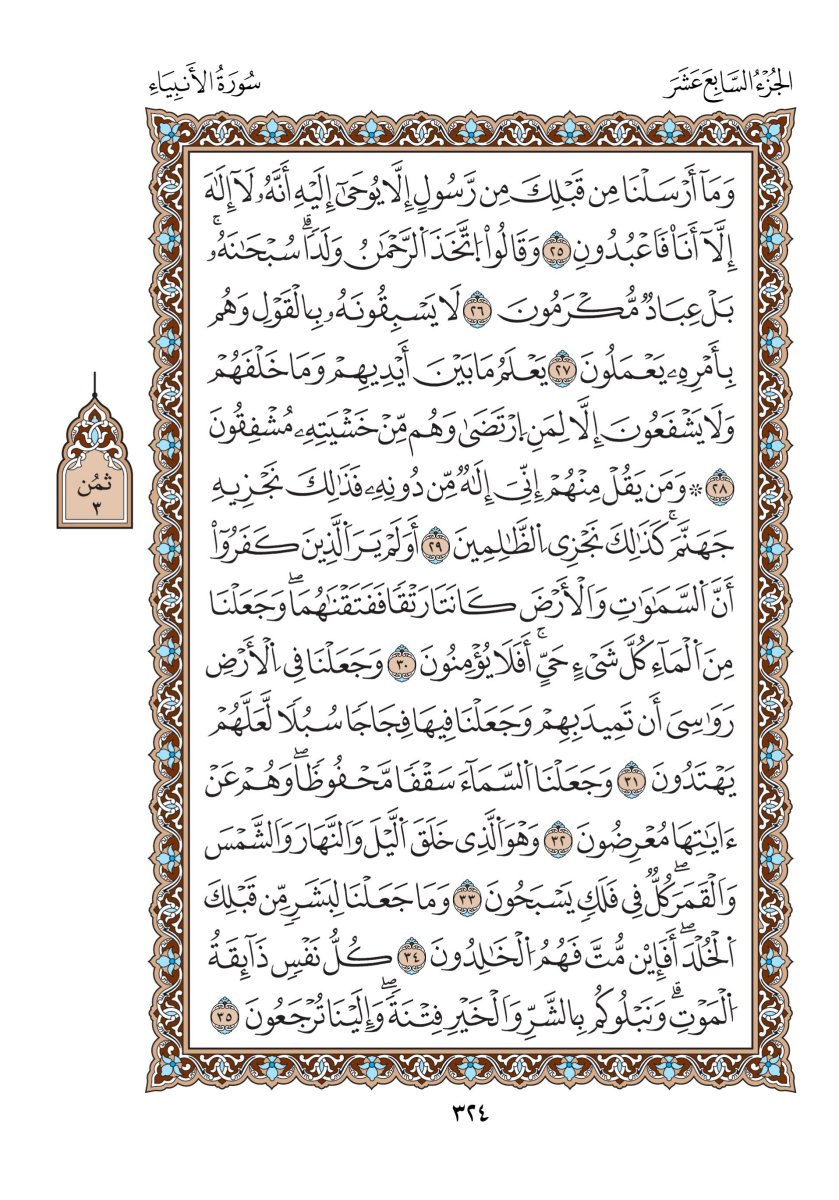 الجُزْءُ السَّابِعَ عَشَرَ
سُورَةُ الأَنبِيَاءِ
وَمَآ أَرْسَلْنَا مِن قَبْلِكَ مِن رَّسُولٍ إِلَّا يُوحَىٰ إِلَيْهِ أَنَّهُۥ لَآ إِلَٰهَ
إِلَّآ أَنَا۠ فَاعْبُدُونِ ٢٥ وَقَالُوا۟ اتَّخَذَ الرَّحْمَٰنُ وَلَدًاۗ سُبْحَٰنَهُۥۚ
بَلْ عِبَادٌ مُّكْرَمُونَ ٢٦ لَا يَسْبِقُونَهُۥ بِالْقَوْلِ وَهُم
بِأَمْرِهِۦ يَعْمَلُونَ ٢٧ يَعْلَمُ مَا بَيْنَ أَيْدِيهِمْ وَمَا خَلْفَهُمْ
وَلَا يَشْفَعُونَ إِلَّا لِمَنِ ارْتَضَىٰ وَهُم مِّنْ خَشْيَتِهِۦ مُشْفِقُونَ
٢٨ ۞ وَمَن يَقُلْ مِنْهُمْ إِنِّىَ إِلَٰهٌ مِّن دُونِهِۦ فَذَٰلِكَ نَجْزِيهِ
جَهَنَّمَۚ كَذَٰلِكَ نَجْزِى الظَّٰلِمِينَ ٢٩ أَوَلَمْ يَرَ الَّذِينَ كَفَرُوٓا۟
أَنَّ السَّمَٰوَٰتِ وَالْأَرْضَ كَانَتَا رَتْقًا فَفَتَقْنَٰهُمَاۖ وَجَعَلْنَا
مِنَ الْمَآءِ كُلَّ شَىْءٍ حَيٍّۚ أَفَلَا يُؤْمِنُونَ ٣٠ وَجَعَلْنَا فِى الْأَرْضِ
رَوَٰسِىَ أَن تَمِيدَ بِهِمْ وَجَعَلْنَا فِيهَا فِجَاجًا سُبُلًا لَّعَلَّهُمْ
يَهْتَدُونَ ٣١ وَجَعَلْنَا السَّمَآءَ سَقْفًا مَّحْفُوظًاۖ وَهُمْ عَنْ
ءَايَٰتِهَا مُعْرِضُونَ ٣٢ وَهْوَ الَّذِى خَلَقَ الَّيْلَ وَالنَّهَارَ وَالشَّمْسَ
وَالْقَمَرَۖ كُلٌّ فِى فَلَكٍ يَسْبَحُونَ ٣٣ وَمَا جَعَلْنَا لِبَشَرٍ مِّن قَبْلِكَ
الْخُلْدَۖ أَفَإِيْن مُّتَّ فَهُمُ الْخَٰلِدُونَ ٣٤ كُلُّ نَفْسٍ ذَآئِقَةُ
الْمَوْتِۗ وَنَبْلُوكُم بِالشَّرِّ وَالْخَيْرِ فِتْنَةًۖ وَإِلَيْنَا تُرْجَعُونَ ٣٥
ثُمُن
٣
٣٢٤